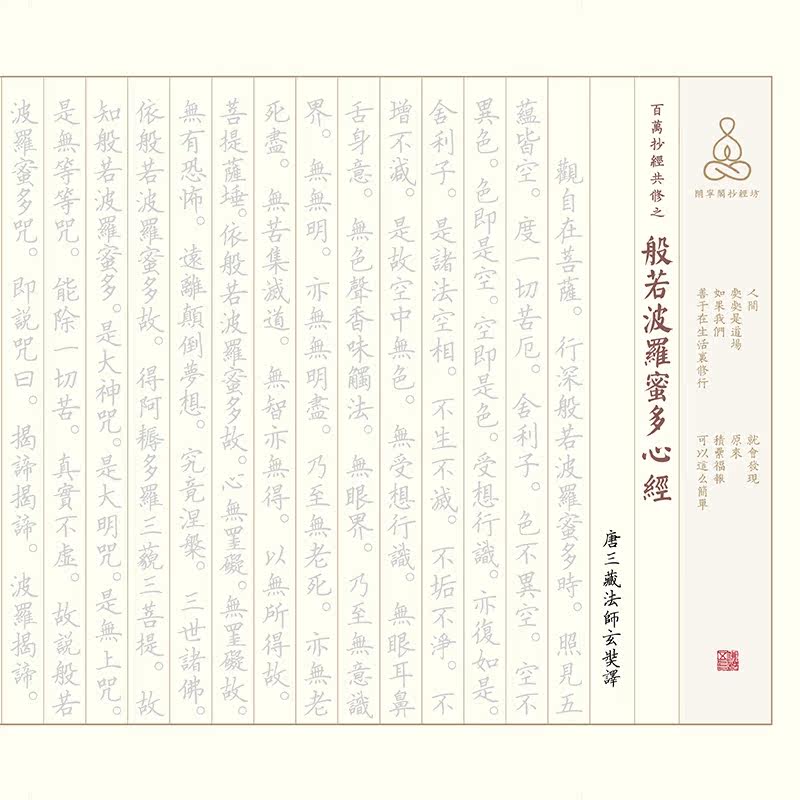 隨寧閣抄經坊
人間
處處是道場
如果我們
善于在生活裏修行
就會發現
原來
積纍福報
可以這么簡單
百萬抄經共修之
般若波羅蜜多心經
唐三藏法師玄奘譯
觀自在菩薩。行深般若波羅蜜多時。照見五
蘊皆空。度一切苦厄。舍利子。色不異空。空不
異色。色即是空。空即是色。受想行識。亦復如是。
舍利子。是諸法空相。不生不滅。不垢不淨。不
增不減。是故空中無色。無受想行識。無眼耳鼻
舌身意。無色聲香味觸法。無眼界。乃至無意識
界。無無明。亦無無明盡。乃至無老死。亦無老
死盡。無苦集滅道。無智亦無得。以無所得故。
菩提薩埵。依般若波羅蜜多故。心無罣礙。無罣礙故。
無有恐怖。遠離顛倒夢想。究竟涅槃。三世諸佛。
依般若波羅蜜多故。得阿耨多羅三藐三菩提。故
知般若波羅蜜多。是大神咒。是大明咒。是無上咒。
是無等等咒。能除一切苦。真實不虛。故說般若
波羅蜜多咒。即說咒曰。揭諦揭諦。波羅揭諦。